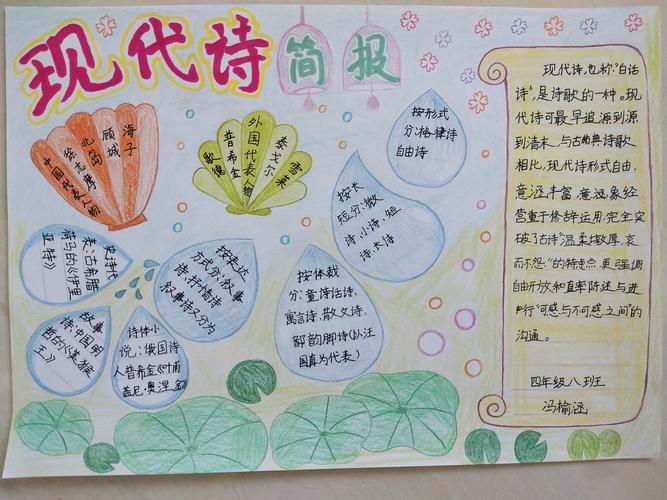 现代诗
简报
中国代表人物
徐志摩
北岛
顾城
海子
歌德
普希金
外国代表人物
泰戈尔
雪莱
按形式
分:格律诗
自由诗
按长
短分:微
诗、小诗、短
诗、长诗
史诗代
表:古希腊
荷马的《伊里
亚特》
按表达
方式分:叙事
诗,抒情诗
叙事诗又分为
故事
诗:中国明
哲的《
王》
诗体小
说:俄国诗
人普希金《叶甫
盖尼·奥涅金》
按体裁
分:童诗话诗,
寓言诗、散文诗、
韵脚诗(以汪
国真为代表)
现代诗,也称"白话
诗",是诗歌的一种。现
代诗可最早追源到源
到清末,与古典诗歌
相比,现代诗形式自由,
意涵丰富,意象经
营重于修辞运用,完全突
破了古诗"温柔敦厚,哀
而不怨"的特点,更强调
自由开放和直率陈述与进
行"可感与不可感之间"的
沟通。
四年级八班
冯榆涵